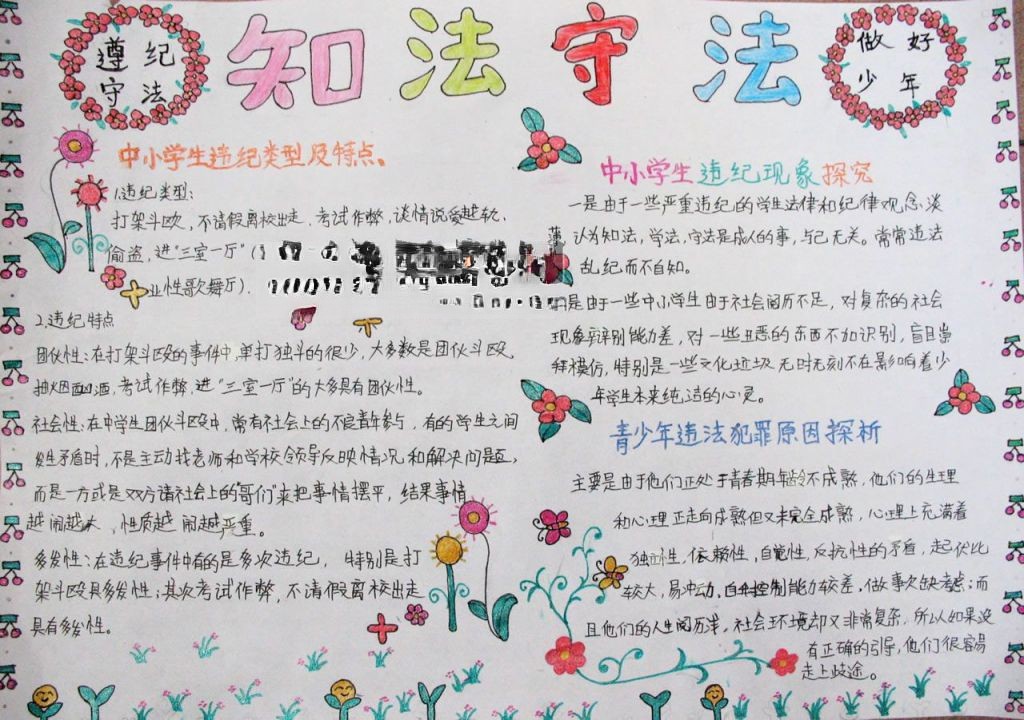 遵纪
守法
知法守法
做好
少年
中小学生违纪类型及特点。
1.违纪类型:
打架斗殴,不请假离校出走,考试作弊,谈情说爱越轨,
偷盗,进“三室一厅”(
业性歌舞厅).
2.违纪特点
团伙性:在打架斗殴的事件中,单打独斗的很少,大多数是团伙斗殴,
抽烟酗酒,考试作弊,进“三室一厅”的大多具有团伙性。
社会性:在中学生团伙斗殴中,常有社会上的不良青年参与,有的学生之间
发生矛盾时,不是主动找老师和学校领导反映情况和解决问题,
而是一方或是双方请社会上的“哥们”来把事情摆平,结果事情
越闹越大,性质越闹越严重。
多发性:在违纪事件中有的是多次违纪,特别是打
架斗殴具多发性;其次考试作弊,不请假离校出走
具有多发性。
中小学生违纪现象探究
一是由于一些严重违纪的学生法律和纪律观念淡
薄,认为知法,学法,守法是成人的事,与己无关。常常违法
乱纪而不自知。
是由于一些中小学生由于社会阅历不足,对复杂的社会
现象辩别能力差,对一些丑恶的东西不加识别,盲目崇
拜模仿,特别是一些文化垃圾无时无刻不在影响着少
年学生本来纯洁的心灵。
青少年违法犯罪原因探析
主要是由于他们正处于青春期年龄不成熟,他们的生理
和心理正走向成熟但又未完全成熟,心理上充满着
独立性,依赖性,自觉性,反抗性的矛盾,起伏比
较大,易冲动,自我控制能力较差,做事欠缺考虑;而
且他们的人生阅历浅,社会环境却又非常复杂,所以如果没
有正确的引导,他们很容易
走上歧途。